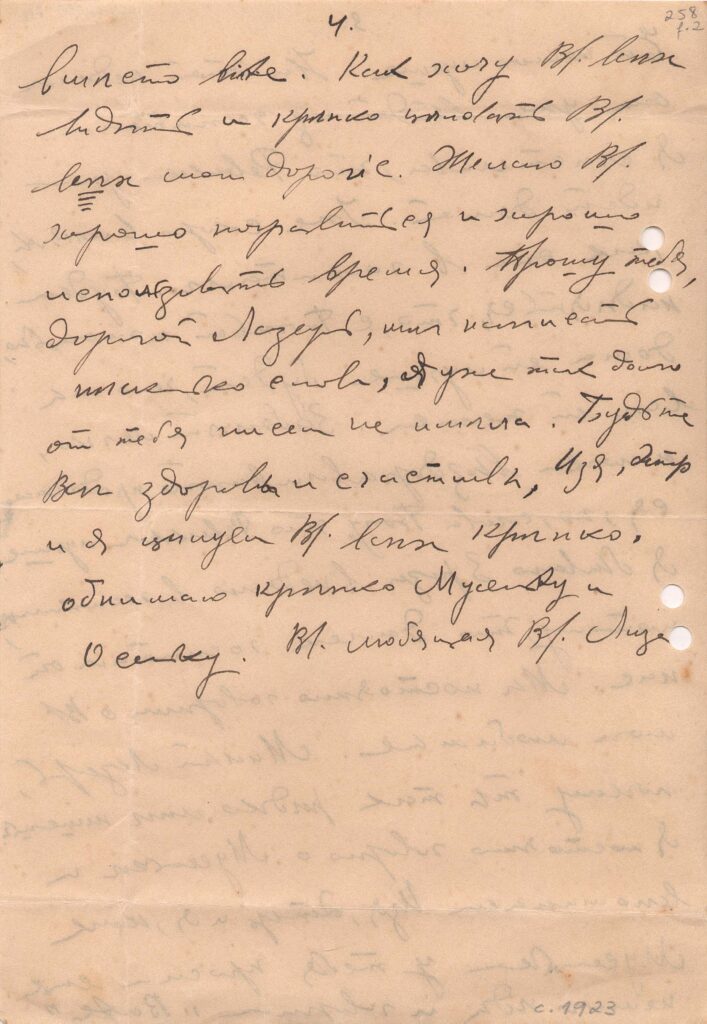 4.
258
f.2
вместо виже. Как хочу Вf. всех
видеть и крепко целовать Вf.
всех мои дорогіе. Желаю Вf.
хорошо поправиться и хорошо
использовать время. Прошу тебя,
дорогой Лазерь, мне написать
несколько слов, я уже так долго
от тебя писем не имела. Будьте
Все здоровы и счастливы, Изя, Этр
и я целуем Вf. всех крепко,
обнимаю крепко Мусеньку и
Осеньку. Вf. любящая Вf. Лиза
c. 1923